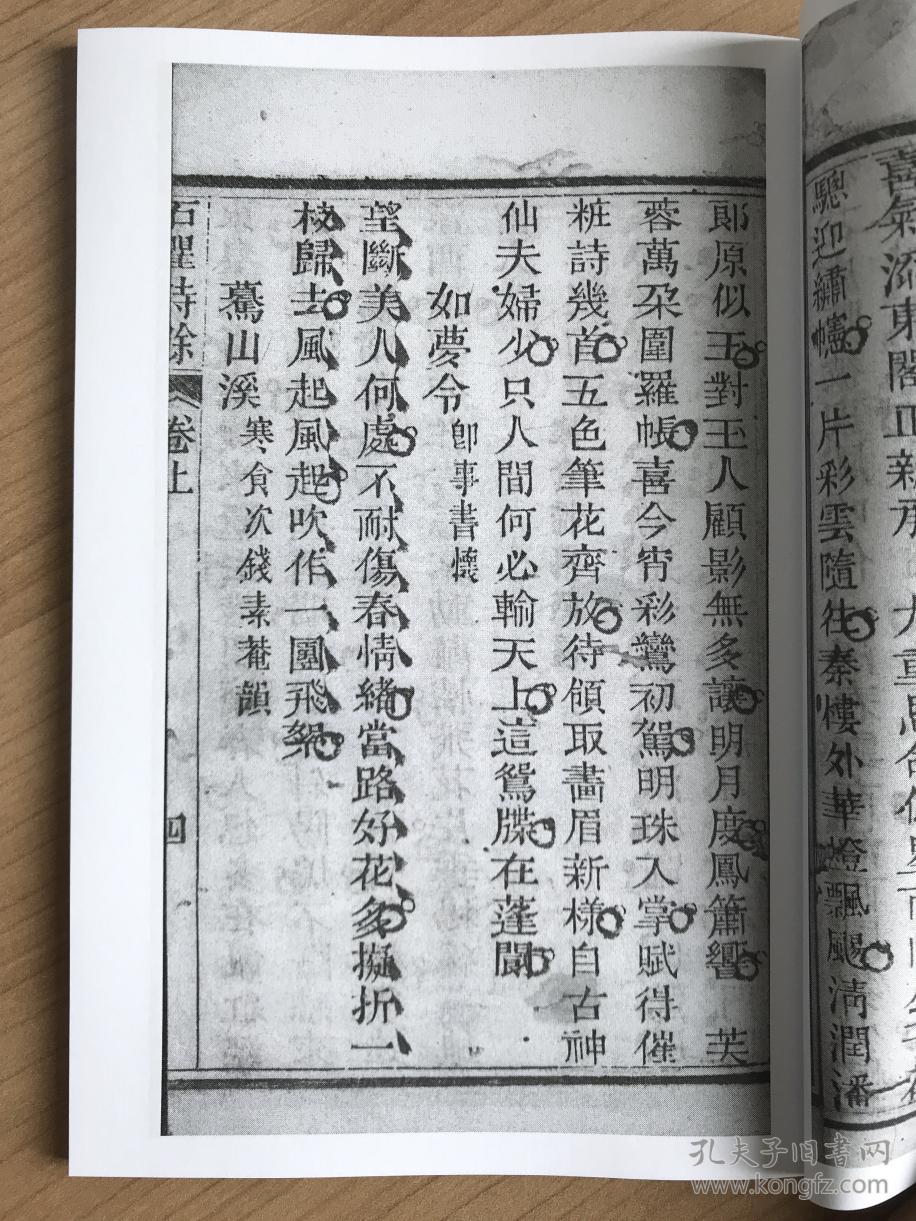 喜氣添東閣正新
驄迎繡幰一片彩雲隨往秦樓外華燈飄颺淸潤潘
郎原似玉對玉人顧影無多讓明月度鳳簫響　芙
蓉萬朶圍羅帳喜今宵彩鸞初駕明珠入掌賦得催
粧詩幾首五色筆花齊放待傾取畵眉新様自古神
仙夫婦少只人間何必輸天上這鴛牒在蓬閬
如夢令 卽事書懷
望斷美人何處不耐傷春情緒當路好花多擬折一
枝歸去風起風起吹作一團飛絮
驀山溪 寒食次錢素菴韻
詩餘 卷上 四
孔夫子旧书网
www.kongfz.com